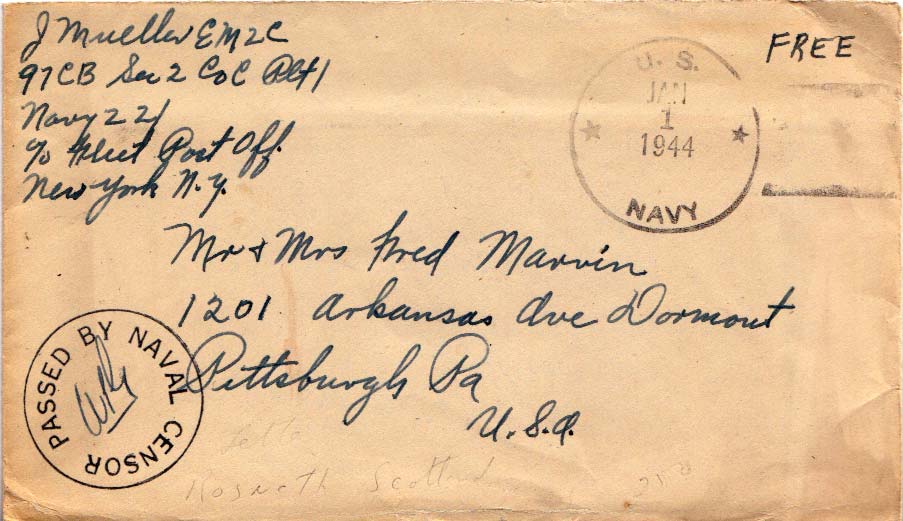 J Mueller EM2C
97CB Sec 2 Co C Plt 1
Navy 221
c/o Fleet Post Off.
New York N.Y.
FREE
U. S.
JAN
1
1944
NAVY
Mr & Mrs Fred Marvin
1201 Arkansas Ave Dormont
Pittsburgh Pa
U.S.A.
PASSED BY NAVAL CENSOR
Rosneath Scotland